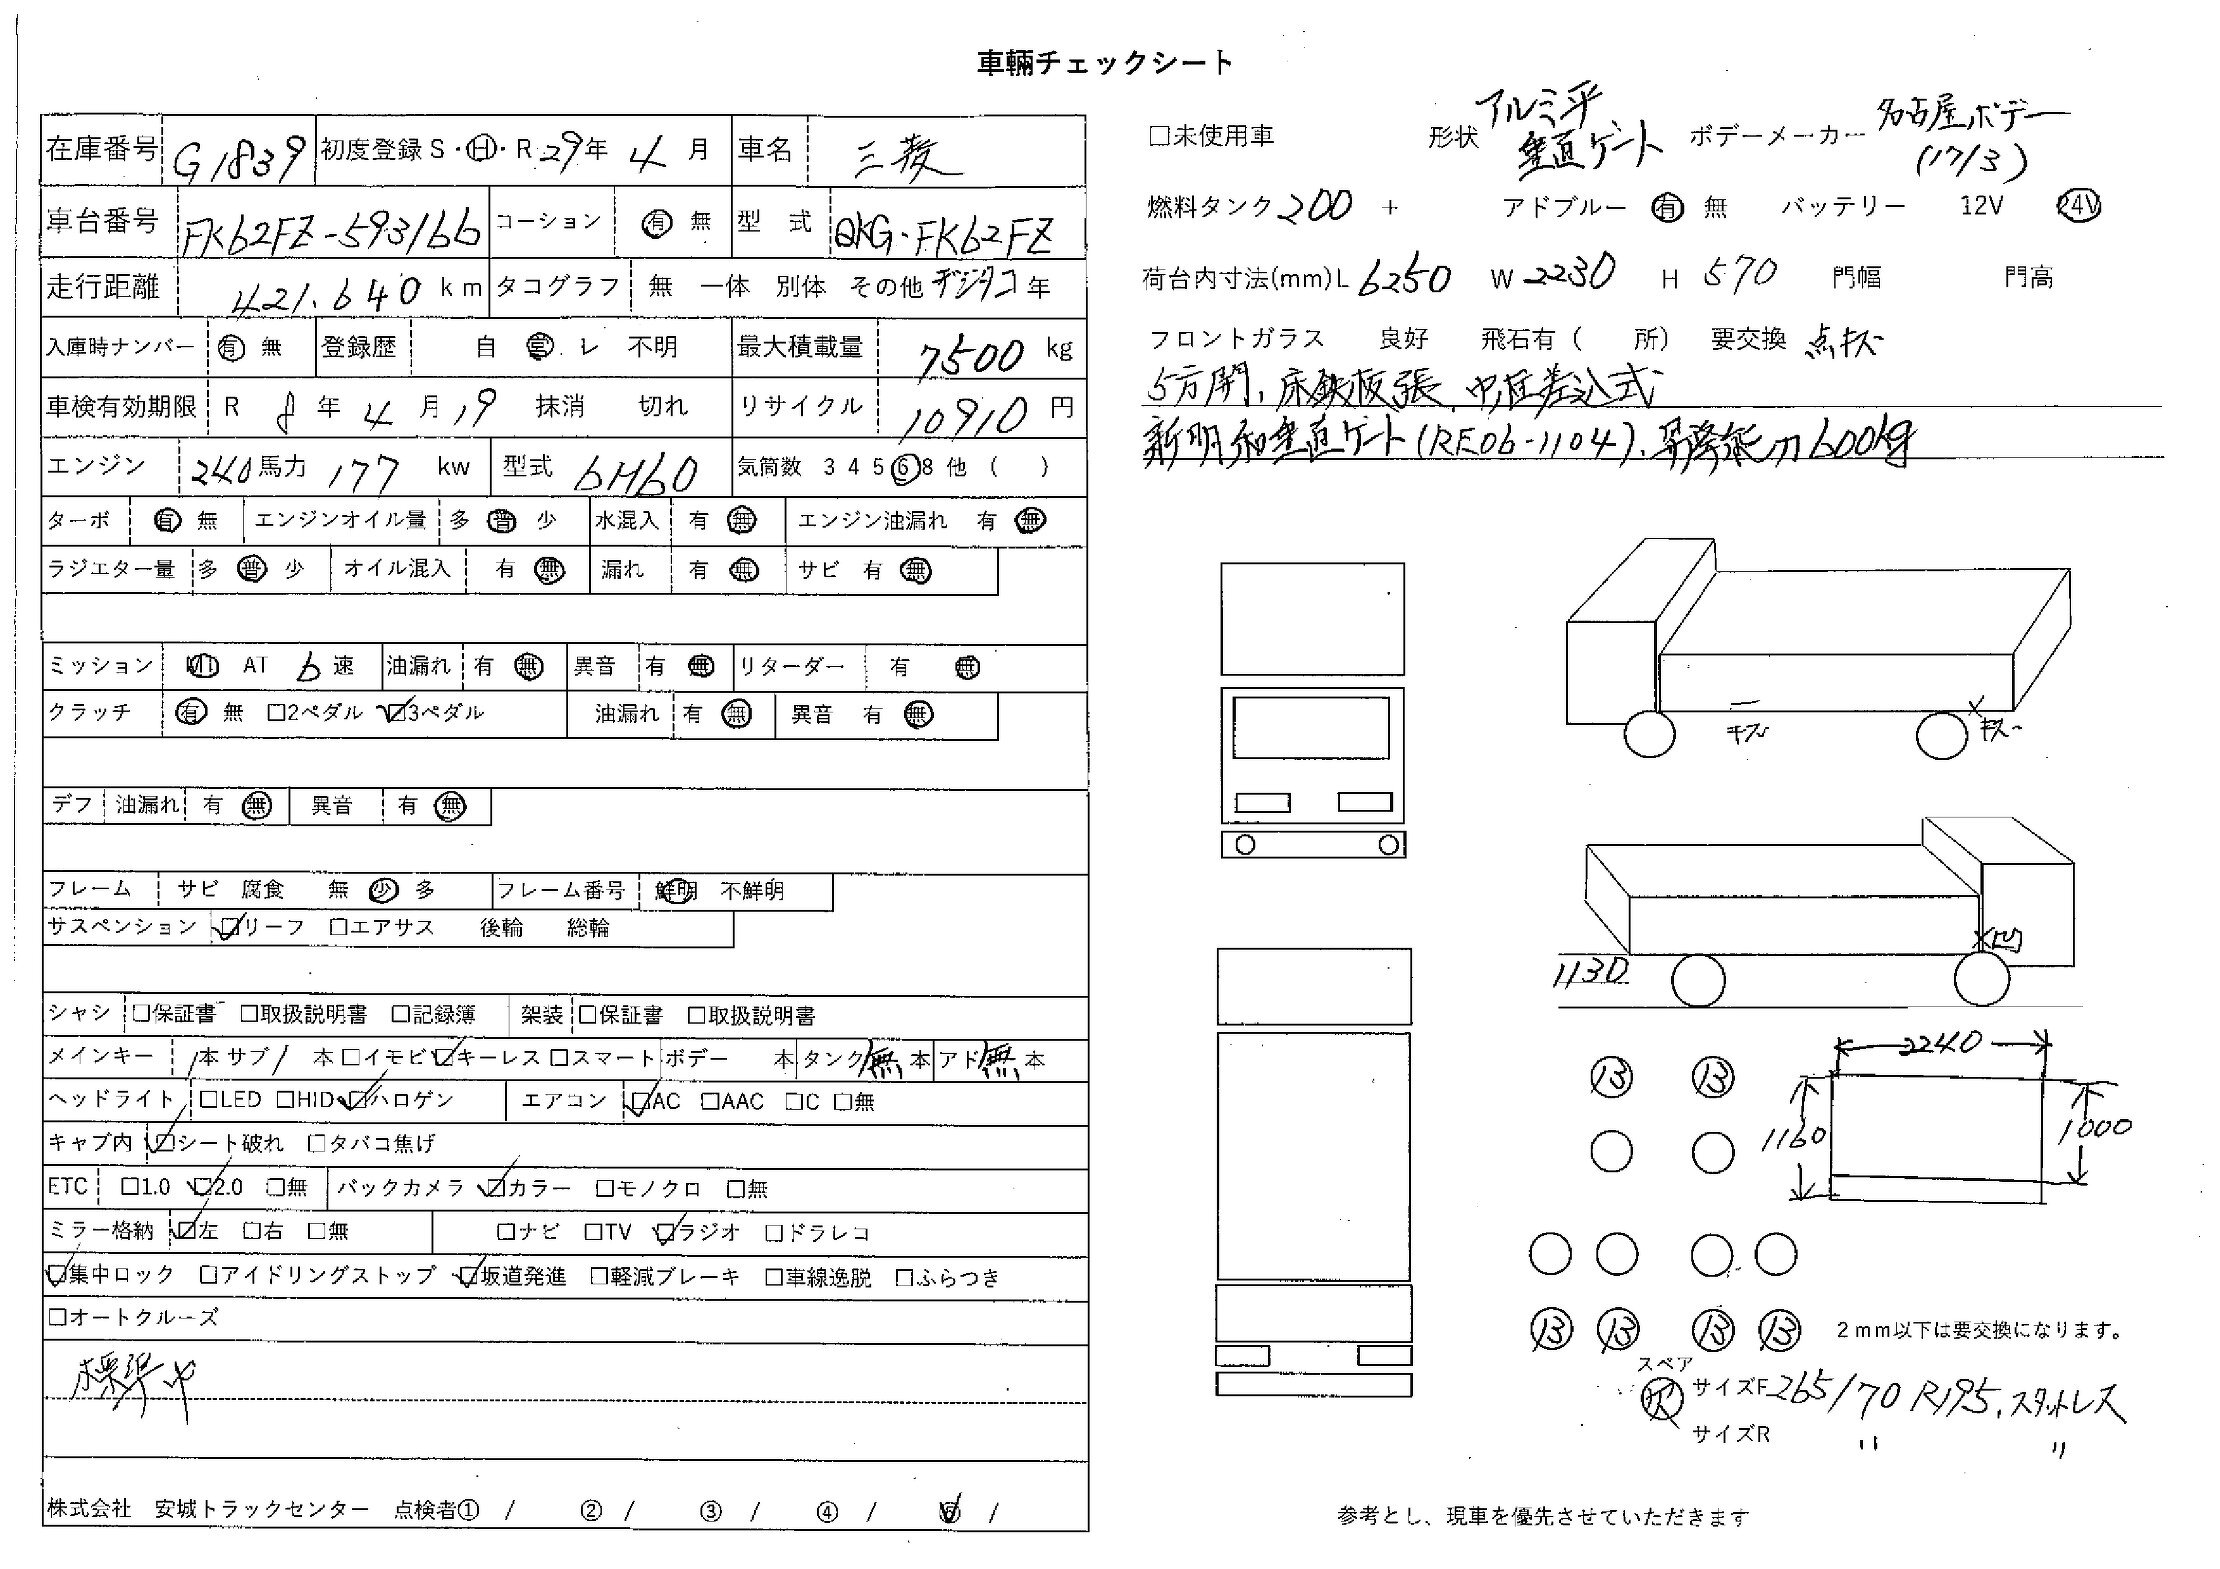 車輛チェックシート
在庫番号 G1839 初度登録 S・Ⓗ・R 29年 4月 車名 三菱
車台番号 FK62FZ-593166 コーション 有 無 型式 QKG-FK62FZ
走行距離 421.640 km タコグラフ 無 一体 別体 その他 デジタコ 年
入庫時ナンバー 有 無 登録歴 自 営 . レ 不明 最大積載量 7500 kg
車検有効期限 R 8年 4月 19 抹消 切れ リサイクル 10910 円
エンジン 240馬力 177 kw 型式 6M60 気筒数 3 4 5 ⑥ 8 他 ( )
ターボ 有 無 エンジンオイル量 多 普 少 水混入 有 無 エンジン油漏れ 有 無
ラジエター量 多 普 少 オイル混入 有 無 漏れ 有 無 サビ 有 無
ミッション MT AT 6速 油漏れ 有 無 異音 有 無 リターダー 有 無
クラッチ 有 無 □2ペダル ☑3ペダル 油漏れ 有 無 異音 有 無
デフ 油漏れ 有 無 異音 有 無
フレーム サビ 腐食 無 少 多 フレーム番号 鮮明 不鮮明
サスペンション ☑リーフ □エアサス 後輪 総輪
シャシ □保証書 □取扱説明書 □記録簿 架装 □保証書 □取扱説明書
メインキー 1本 サブ 1 本 □イモビ ☑キーレス □スマート ボデー 本 タンク 無 本 アド 無 本
ヘッドライト □LED □HID ☑ハロゲン エアコン ☑AC □AAC □C □無
キャブ内 ☑シート破れ □タバコ焦げ
ETC □1.0 ☑2.0 □無 バックカメラ ☑カラー □モノクロ □無
ミラー格納 ☑左 □右 □無 □ナビ □TV ☑ラジオ □ドラレコ
☑集中ロック □アイドリングストップ ☑坂道発進 □軽減ブレーキ □車線逸脱 □ふらつき
□オートクルーズ
標準巾
株式会社 安城トラックセンター 点検者① / ② / ③ / ④ / ⑤ /
□未使用車 形状 アルミ平 垂直ゲート ボデーメーカー 名古屋ボデー (17/3)
燃料タンク 200 + アドブルー 有 無 バッテリー 12V 24V
荷台内寸法(mm)L 6250 W 2230 H 570 門幅 門高
フロントガラス 良好 飛石有 ( 所) 要交換 点キズ
5方開, 床鉄板張, 中柱差込式
新明和垂直ゲート(RE06-1104), 昇降能力600kg
キズ
キズ
凹
1130
2240
⑬ ⑬
1160
1000
⑬ ⑬ ⑬ ⑬ 2mm以下は要交換になります。
スペア
サイズF 265/70 R19.5, スタットレス
サイズR 〃 〃
参考とし、現車を優先させていただきます